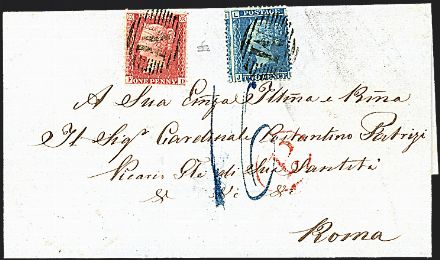 POSTAGE
ONE PENNY
A Sua Emza Illma e Rma
Il Sigr Cardinale Costantino Patrizi
Vicario Gle di Sua Santità
& & &
Roma